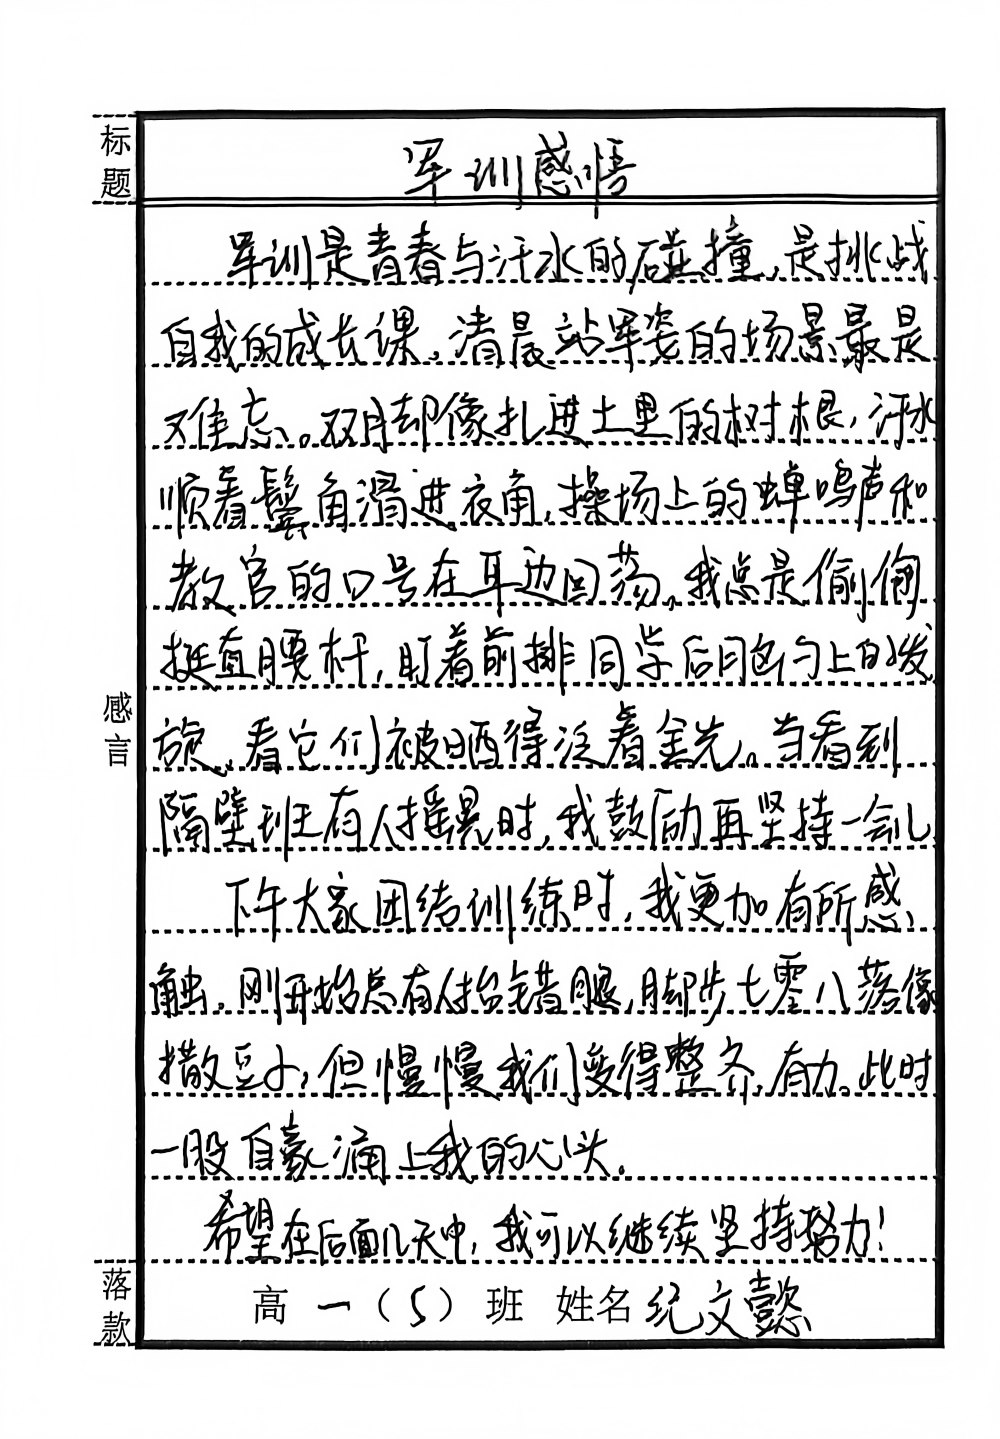 标题
军训感悟
军训是青春与汗水的碰撞,是挑战
自我的成长课。清晨站军姿的场景最是
难忘。双脚像扎进土里的树根,汗水
顺着鬓角滑进衣角,操场上的蝉鸣声和
教官的口号在耳边回荡。我总是偷偷
挺直腰杆,盯着前排同学后脑勺上的发
旋,看它们被晒得泛着金光。当看到
隔壁班有人摇晃时,我鼓励再坚持一会儿
感言
下午大家团结训练时,我更加有所感
触。刚开始总有人抬错腿,脚步七零八落像
撒豆子,但慢慢我们变得整齐,有力。此时
一股自豪涌上我的心头。
希望在后面几天中,我可以继续坚持努力!
落款
高一(5)班 姓名纪文懿